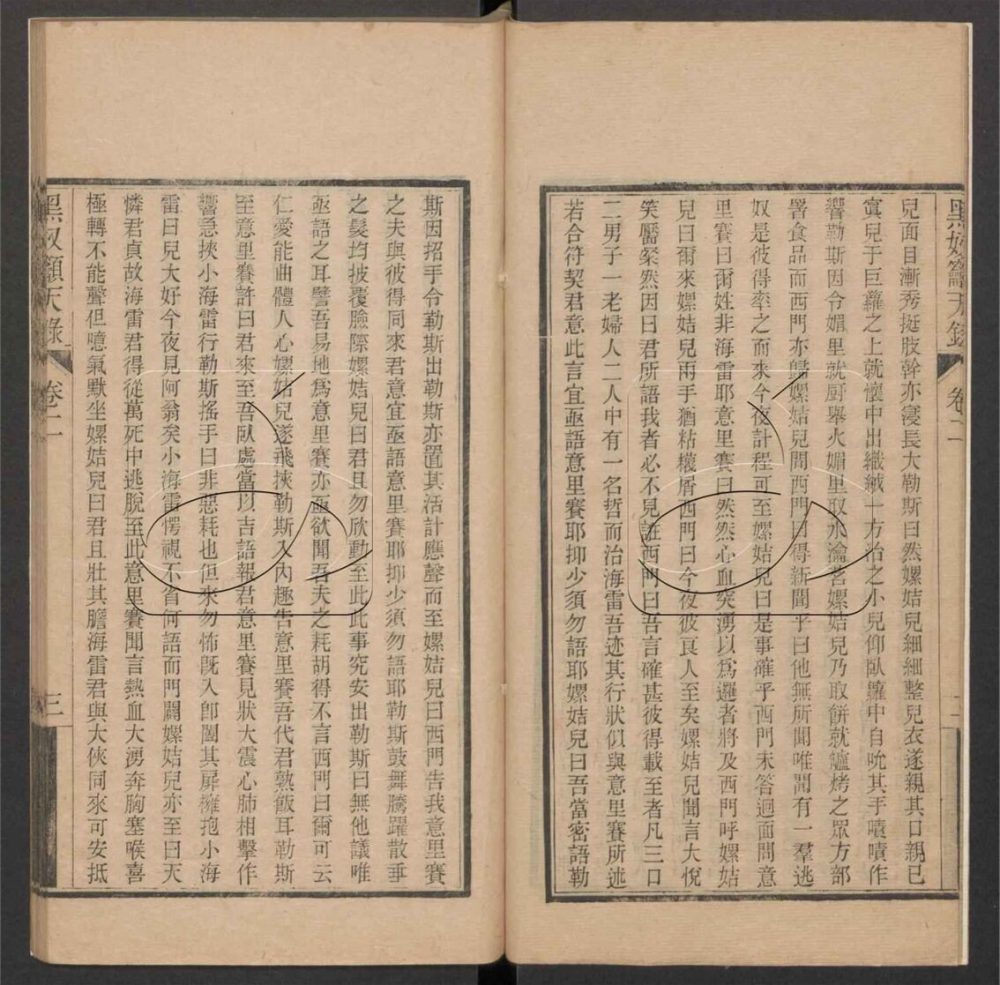 黑奴籲天錄 卷二 二
兒面目漸秀挺肢幹亦寖長大勒斯曰然嫘姑兒細細整兒衣遂親其口親已
寘兒于巨籮之上就懷中出織絨一方治之小兒仰臥籮中自吮其手嘖嘖作
響勒斯因令媚里就厨舉火媚里取水瀹茗嫘姑兒乃取餅就爐烤之眾方部
署食品而西門亦歸嫘姑兒問西門曰得新聞乎曰他無所聞唯聞有一羣逃
奴是彼得率之而來今夜計程可至嫘姑兒曰是事確乎西門未答迴面問意
里賽曰爾姓非海雷耶意里賽曰然然心血突湧以爲邏者將及西門呼嫘姑
兒曰爾來嫘姑兒兩手猶粘糭屑西門曰今夜彼良人至矣嫘姑兒聞言大悅
笑靨粲然因曰君所語我者必不見誑西門曰吾言確甚彼得載至者凡三口
二男子一老婦人二人中有一名哲而治海雷吾迹其行狀似與意里賽所述
若合符契君意此言宜亟語意里賽耶抑少須勿語耶嫘姑兒曰吾當密語勒
斯因招手令勒斯出勒斯亦置其活計應聲而至嫘姑兒曰西門告我意里賽
之夫與彼得同來君意宜亟語意里賽耶抑少須勿語耶勒斯鼓舞騰躍散垂
之髮均披覆臉際嫘姑兒曰君且勿欣動至此此事究安出勒斯曰無他議唯
亟語之耳譬吾易地爲意里賽亦亟欲聞吾夫之耗胡得不言西門曰爾可云
仁愛能曲體人心嫘姑兒遂飛挾勒斯入內趣告意里賽吾代君熟飯耳勒斯
至意里賽許曰君來至吾臥處當以吉語報君意里賽見狀大震心肺相擊作
響急挾小海雷行勒斯搖手曰非惡耗也但來勿怖旣入卽闔其扉擁抱小海
雷曰兒大好今夜見阿翁矣小海雷愕視不省何語而門闢嫘姑兒亦至曰天
憐君貞故海雷君得從萬死中逃脫至此意里賽聞言熱血大湧奔胸塞喉喜
極轉不能聲但噫氣默坐嫘姑兒曰君且壯其膽海雷君與大俠同來可安抵
黑奴籲天錄 卷二 三